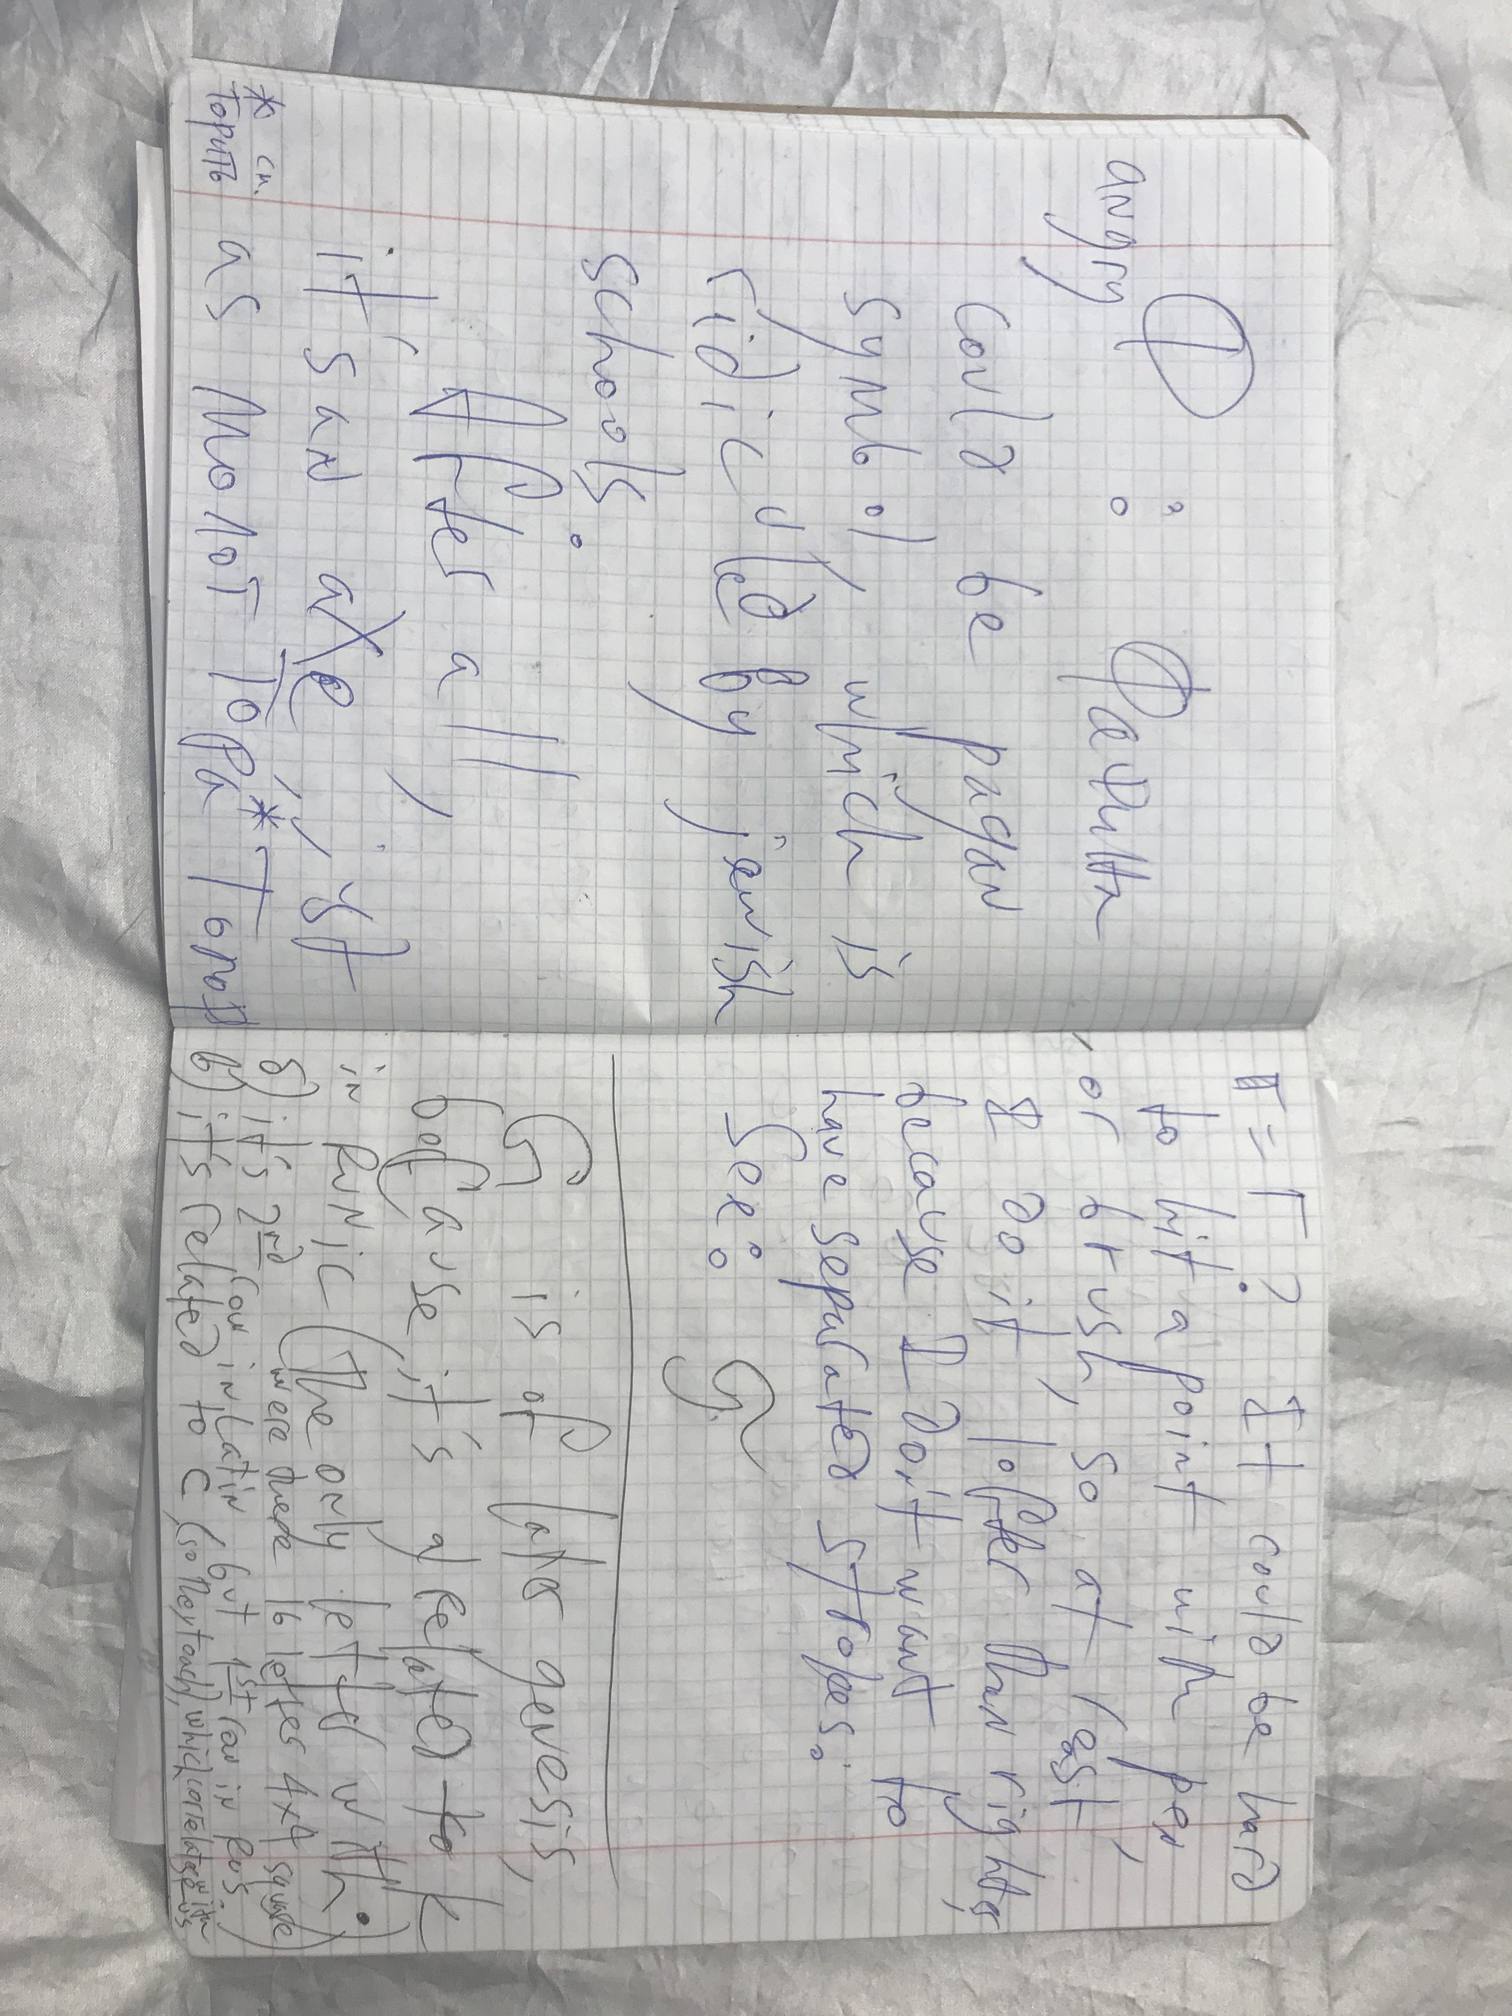 angry Ф : Фаллн
could be pagan
symbol, which is
ridiculed by jewish
schools.
After all,
it's an axe, jst
as молот Тора* Топор
* см.
Торить
Т = Г? It could be hard
to hit a point with pen,
, or brush, so at least
I do it lofter than righter
because I don't want to
have separated stropes.
See: G
G is of late genesis,
because it's a related to k
in runic (the only letter with •)
б) it's 2nd row in Latin, but 1st row in Rus.
were there 16 letters 4x4 square)
в) it's related to C